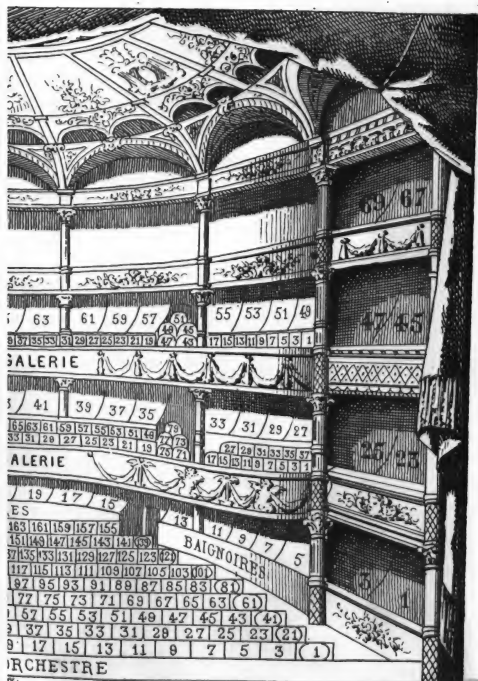 69/67
47/45
63 61 59 57 51 55 53 51 49
49 45
37 35 33 31 29 27 25 23 21 19 47 43 17 15 13 11 9 7 5 3 1
GALERIE
41 39 37 35 33 31 29 27
65 63 61 59 57 55 53 51 79 27 29 31 33 35 37
33 31 29 27 25 23 21 19 75 71 17 15 13 11 9 7 5 3 1
77 73
25/23
ALERIE
19 17 15 13 11 9 7 5
ES
BAIGNOIRES
3 1
163 161 159 157 155
151 149 147 145 143 141 139
135 133 131 129 127 125 123 121
117 115 113 111 109 107 105 103 101
97 95 93 91 89 87 85 83 81
77 75 73 71 69 67 65 63 61
57 55 53 51 49 47 45 43 41
37 35 33 31 29 27 25 23 21
17 15 13 11 9 7 5 3 1
ORCHESTRE